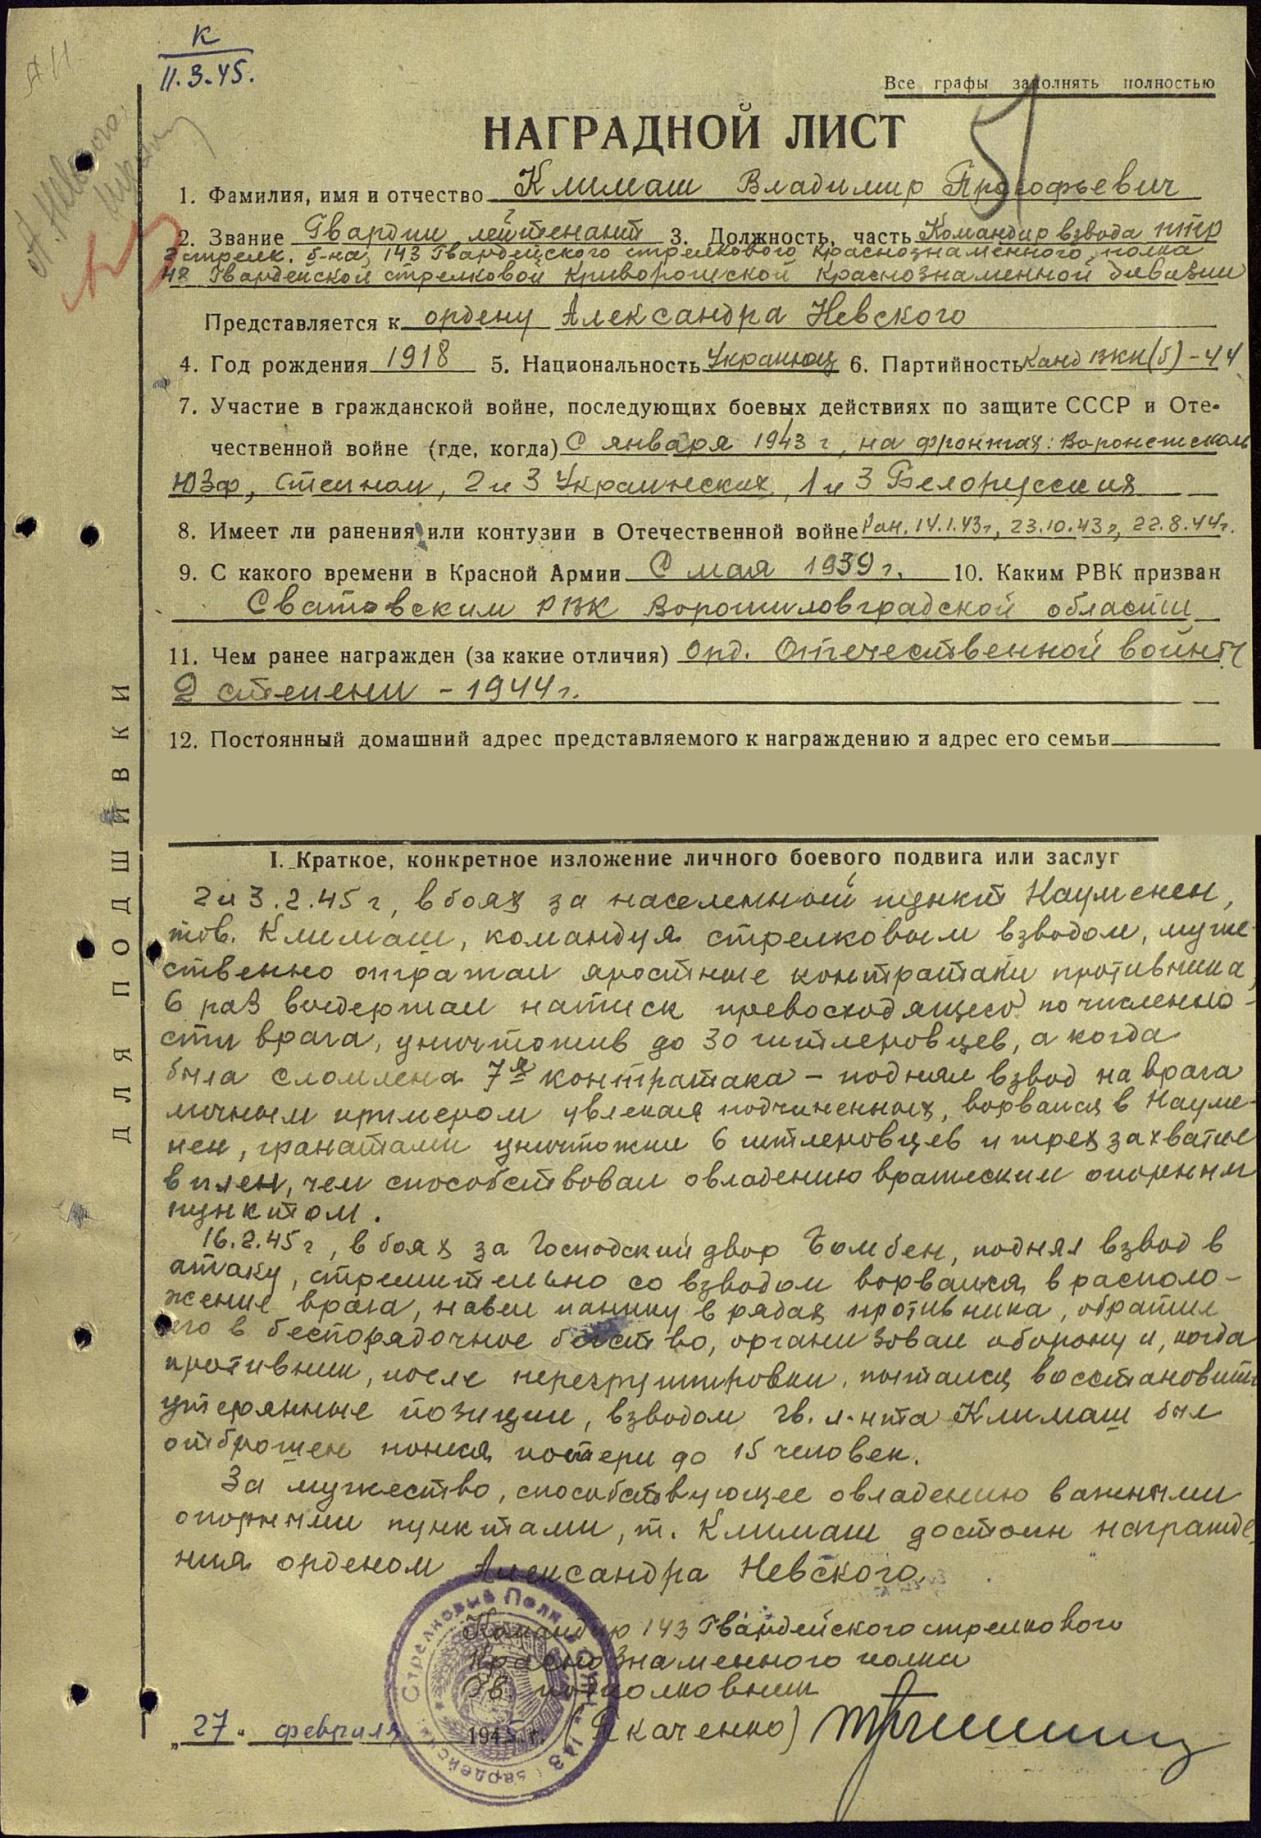 К
11.3.45.
Все графы заполнять полностью
51
НАГРАДНОЙ ЛИСТ
1. Фамилия, имя и отчество Климаш Владимир Прокофьевич
2. Звание Гвардии лейтенант 3. Должность, часть Командир взвода птр
3 стрелк. б-на, 143 Гвардейского стрелкового Краснознаменного полка
48 Гвардейской стрелковой Криворожской Краснознаменной дивизии
Представляется к ордену Александра Невского
4. Год рождения 1918 5. Национальность Украинец 6. Партийность Канд ВКП(б) - 44
7. Участие в гражданской войне, последующих боевых действиях по защите СССР и Оте-
чественной войне (где, когда) С января 1943 г, на фронтах: Воронежском
ЮЗф, Степном, 2 и 3 Украинских, 1 и 3 Белорусския
8. Имеет ли ранения или контузии в Отечественной войне Ран. 14.1.43г, 23.10.43г, 22.8.44г.
9. С какого времени в Красной Армии С мая 1939 г. 10. Каким РВК призван
Сватовским РВК Ворошиловградской области
11. Чем ранее награжден (за какие отличия) Орд. Отечественной войны
2 степени - 1944 г.
12. Постоянный домашний адрес представляемого к награждению и адрес его семьи
ДЛЯ ПОДШИВКИ
I. Краткое, конкретное изложение личного боевого подвига или заслуг
2 и 3.2.45 г, в боях за населенный пункт Науменен,
тов. Климаш, командуя стрелковым взводом, муже-
ственно отражал яростные контратаки противника,
6 раз выдержал натиск превосходящего по численно-
сти врага, уничтожив до 30 гитлеровцев, а когда
была сломлена 7я контратака - поднял взвод на врага
личным примером увлекая подчиненных, ворвался в Науме-
нен, гранатами уничтожил 6 гитлеровцев и трех захватил
в плен, чем способствовал овладению вражеским опорным
пунктом.
16.2.45 г, в боях за Господский двор Бомбен, поднял взвод в
атаку, стремительно со взводом ворвался в располо-
жение врага, навел панику в рядах противника, обратил
его в беспорядочное бегство, организовал оборону и, когда
противник, после перегруппировки, пытался восстановить
утерянные позиции, взводом гв. л-нта Климаш был
отброшен понеся потери до 15 человек.
За мужество, способствующее овладению важными
опорными пунктами, т. Климаш достоин награжде-
ния орденом Александра Невского.
Командир 143 Гвардейского стрелкового
Краснознаменного полка
Гв. подполковник
"27" февраля 1945 г. (Ткаченко)